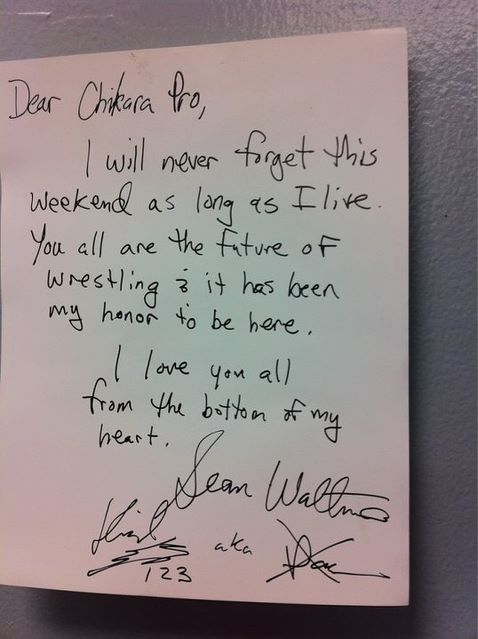 Dear Chikara Pro,
I will never forget this
weekend as long as I live.
You all are the future of
wrestling & it has been
my honor to be here.
I love you all
from the bottom of my
heart.
Sean Waltman
Kid
aka
123